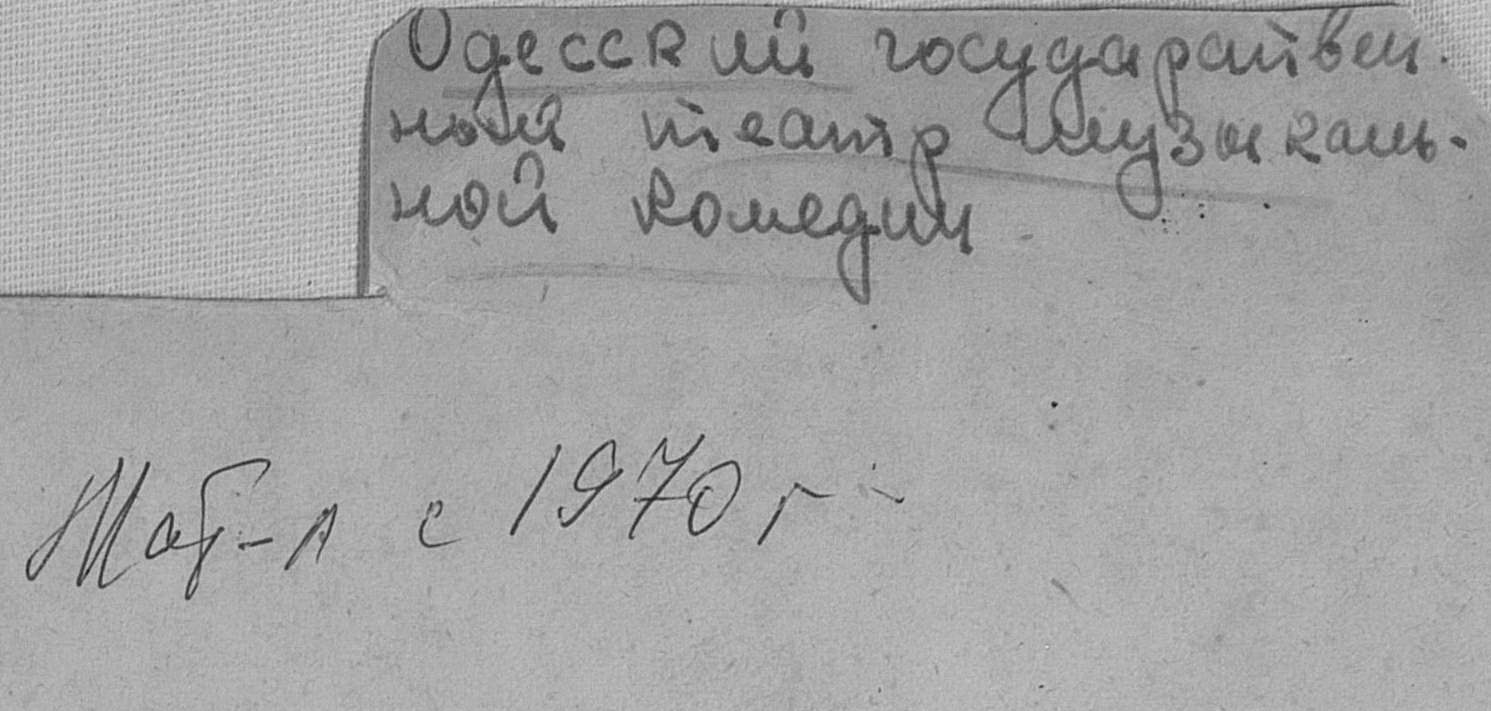 Одесский государствен-
ный театр музыкаль-
ной комедии
Мат-л с 1970 г-